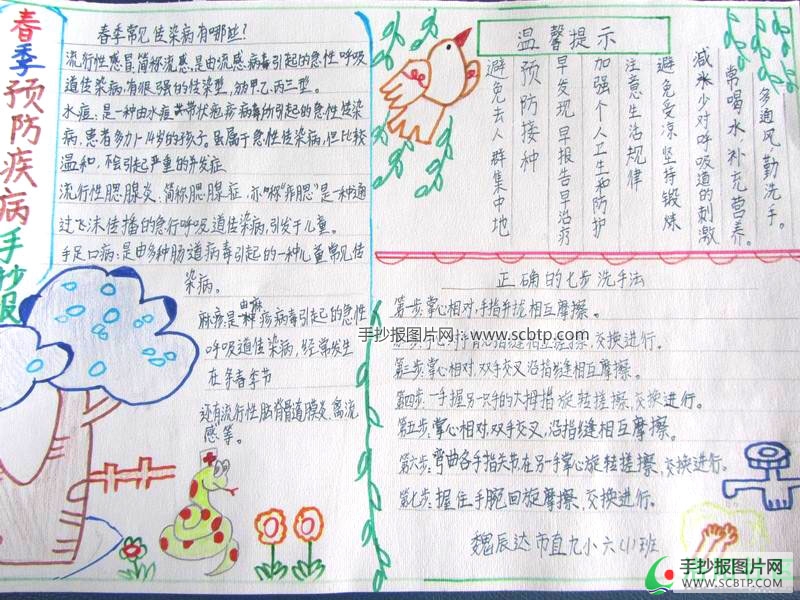 春季预防疾病手抄报
春季常见传染病有哪些?
流行性感冒,简称流感,是由流感病毒引起的急性呼吸
道传染病,有很强的传染型,分为甲乙丙三型。
水痘:是一种由水痘带状疱疹病毒引起的急性传染
病,患者多为1-14岁的孩子。虽属于急性传染病,但比较
温和,不会引起严重的并发症
流行性腮腺炎:简称腮腺症,亦称“痄腮”是一种通
过飞沫传播的急行呼吸道传染病,引发于儿童。
手足口病:是由多种肠道病毒引起的一种儿童常见传
染病。
麻疹:是由麻疹病毒引起的急性
呼吸道传染病,经常发生
在冬春年节
还有流行性脑脊髓膜炎、禽流
感等。
温馨提示
多通风,勤洗手。
常喝水,补充营养。
减少对呼吸道的刺激
避免受凉 坚持锻炼
注意生活规律
加强个人卫生和防护
早发现 早报告早治疗
预防接种
避免去人群集中地
正确的七步洗手法
第一步:掌心相对,手指并拢相互摩擦。
交换进行。
掌心相对,双手交叉沿指缝相互摩擦。
第四步:一手握另一只手的大拇指旋转搓擦,交换进行。
第五步:掌心相对,双手交叉,沿指缝相互摩擦。
第六步:弯曲各手指关节在另一手掌心旋转搓擦,交换进行。
第七步:握住手腕回旋摩擦,交换进行。
魏辰达 市直九小 六(1)班
手抄报图片网:www.scbtp.com
手抄报图片网
WWW.SCBTP.COM